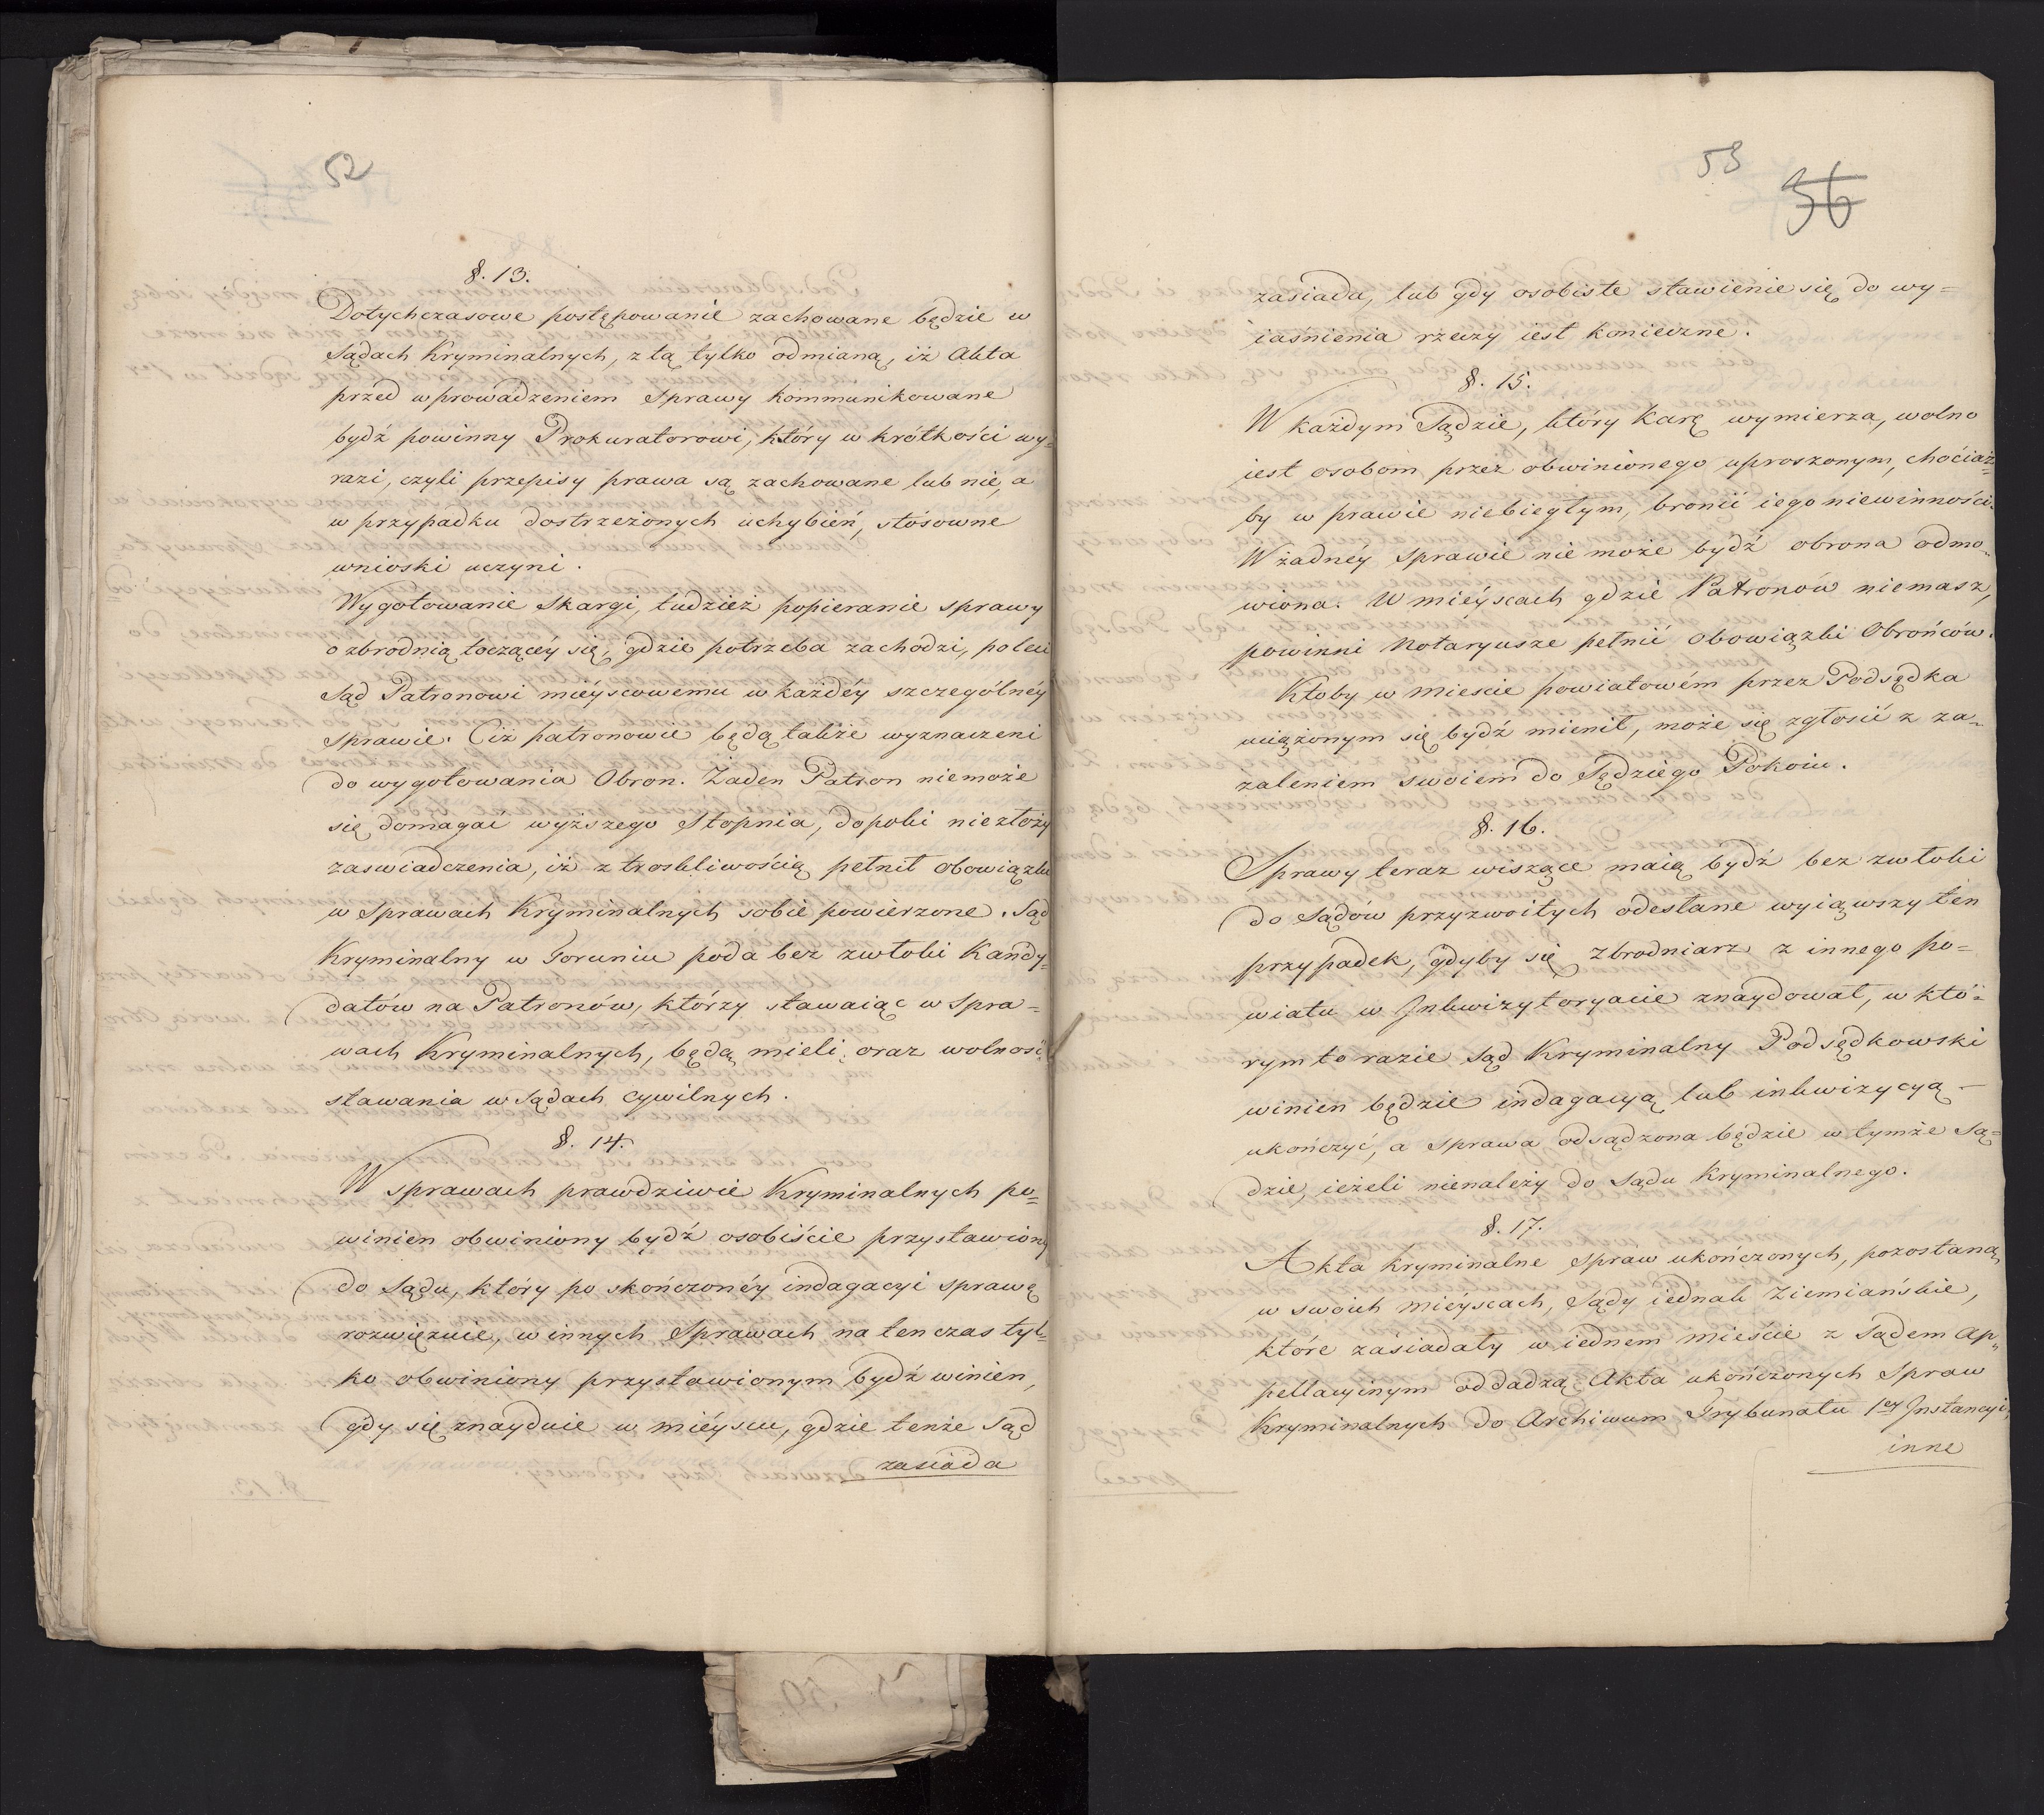 52
§. 13.
Dotychczasowe postępowanie zachowane będzie w
Sądach Kryminalnych, z tą tylko odmianą, iż Akta
przed wprowadzeniem Sprawy kommunikowane
bydź powinny Prokuratorowi, który w krótkości wy=
razi, czyli przepisy prawa są zachowane lub nie, a
w przypadku dostrzeżonych uchybień, stósowne
wnioski uczyni.
Wygotowanie Skargi, tudzież popieranie sprawy
o zbrodnią toczącéy się, gdzie potrzeba zachodzi, poleci
Sąd Patronowi miéyscowemu w każdéy szczególnéy
Sprawie. Ciż patronowie będą także wyznaczeni
do wygotowania Obron. Żaden Patron niemoże
się domagać wyższego Stopnia, dopoki niezłoży
zaswiadczenia, iż z troskliwością pełnił obowiązki
w Sprawach Kryminalnych sobie powierzone. Sąd
Kryminalny w Toruniu poda bez zwłoki Kandy=
datów na Patronów, którzy stawaiąc w Spra=
wach Kryminalnych, będą mieli oraz wolność
stawania w Sądach cywilnych.
§. 14.
W sprawach prawdziwie Kryminalnych po=
winien obwiniony bydź osobiście przystawiony
do Sądu, który po skończonéy indagacyi sprawę
rozwięzuie, w innych Sprawach na ten czas tyl=
ko obwiniony przystawionym bydź winien,
gdy się znayduie w miéyscu, gdzie tenże Sąd
zasiada
53
36
zasiada, lub gdy osobiste stawienie się do wy=
iaśnienia rzeczy iest konieczne.
§. 15.
W każdym Sądzie, który Karę wymierza, wolno
iest osobom przez obwinionego uproszonym, chociaż=
by w prawie niebiegłym, bronić iego niewinności.
W żadnéy Sprawie nie może bydź obrona odmo=
wiona. W miéyscach gdzie Patronów niemasz,
powinni Notaryusze pełnić obowiązki Obrońców.
Ktoby w miescie powiatowém przez Podsędka
uciążonym się bydź mienił, może się zgłosić z za=
żaleniem swoiem do Sędziego Pokoiu.
§. 16.
Sprawy teraz wiszące maią bydź bez zwłoki
do Sądów przyzwoitych odesłane wyiąwszy ten
przypadek, gdyby się Zbrodniarz z innego po=
wiatu w Inkwizytoryacie znaydował, w któ=
rym to razie Sąd Kryminalny Podsędkowski
winien będzie indagacyą lub inkwizycyą
ukończyć, a Sprawa odsądzona będzie w tymże Są=
dzie, ieżeli nienależy do Sądu Kryminalnego.
§. 17.
Akta Kryminalne Spraw ukończonych, pozostaną
w swoich miéyscach, Sądy iednak Ziemiańskie,
które zasiadały w iednem mieście z Sądem Ap=
pellacyinym oddadzą Akta ukończonych Spraw
Kryminalnych do Archiwum Trybunału 1ey Instancyi,
inne